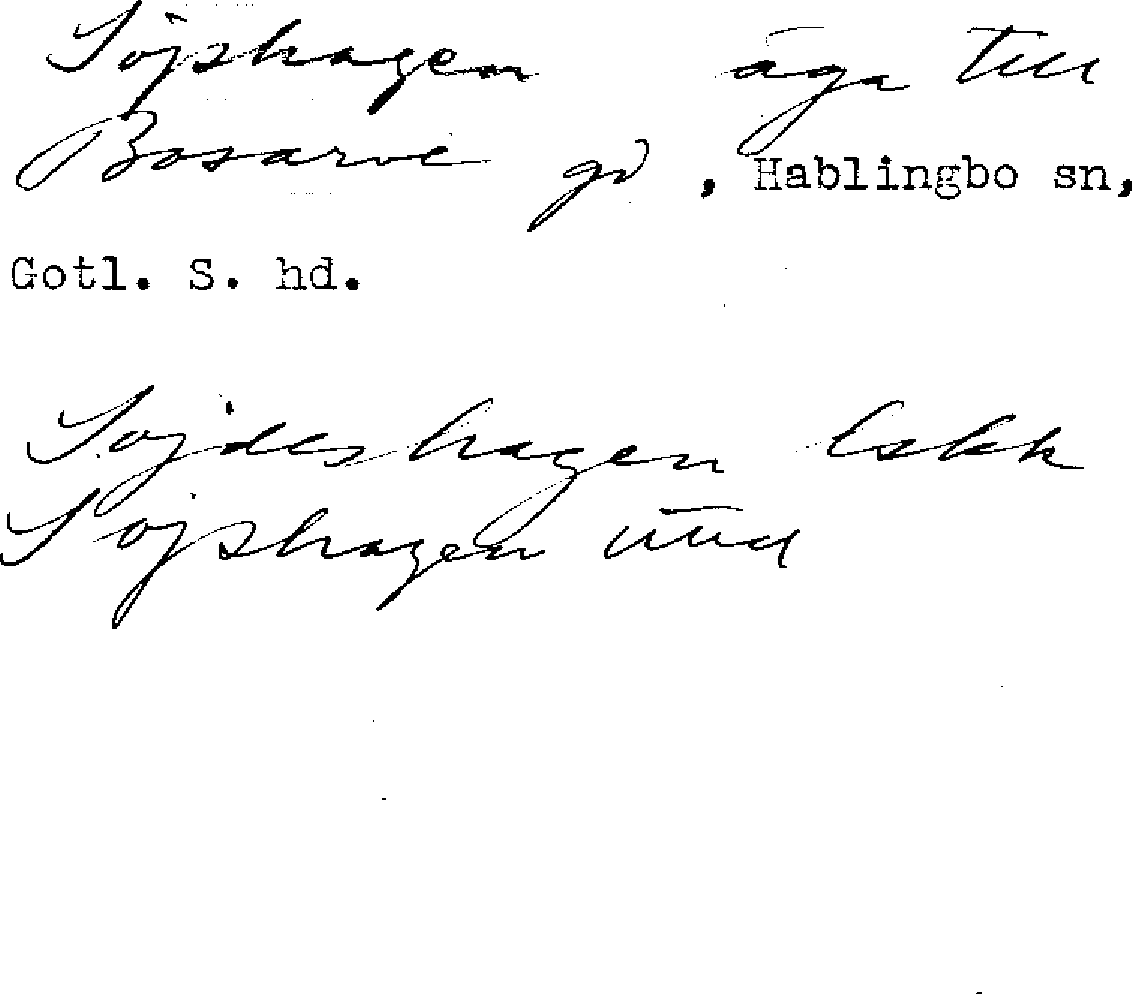 Söjshagen äga till
Bosarve gd, Hablingbo sn,
Gotl. S. hd.
Sojdeshagen Lskk
Sojshagen uttal